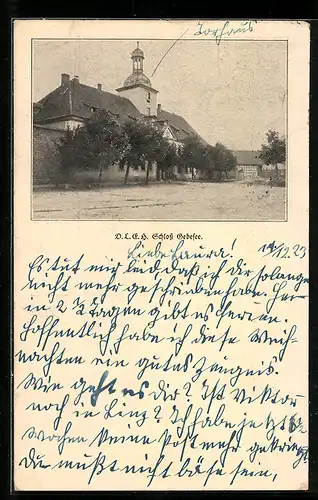 Torhaus
D. L. E. H. Schloß Gebesee.
Liebe Laura! 14/12.23
Es tut mir leid, daß ich dir so lange
nicht mehr geschrieben habe. Hier
in 2 1/2 Tagen gibt es Ferien.
Hoffentlich habe ich diese Weih-
nachten ein gutes Zeugnis.
Wie geht es dir? Ist Viktor
noch in Linz? Ich habe ja
Wochen keine Post mehr gekriegt
Du mußt nicht böse sein,